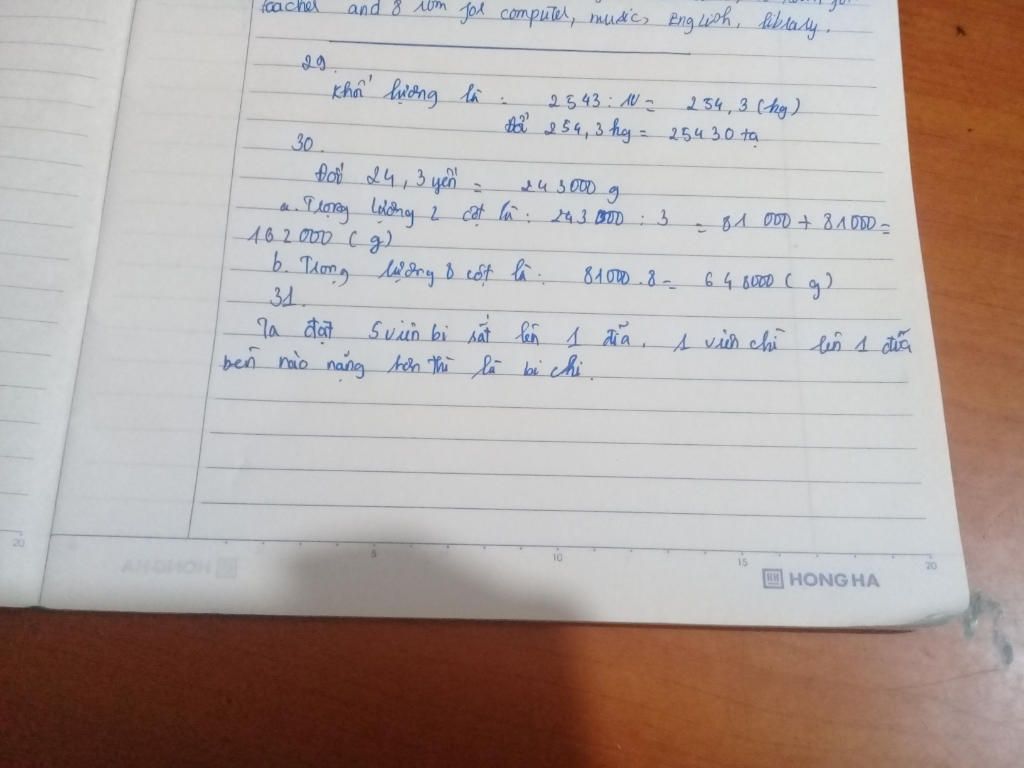 teacher and 8 rom for computer, music, English, library.
29.
Khối lượng là : 2543 : 10 = 254,3 (kg)
Đổi 254,3 kg = 25430 tạ
30.
Đổi 24,3 yến = 243000 g
a. Trọng lượng 2 cột là : 243000 : 3 = 81 000 + 81000 =
162000 ( g )
b. Trọng lượng 8 cột là : 81000 . 8 = 648000 ( g )
31.
Ta đặt 5 viên bi sắt lên 1 đĩa, 1 viên chì lên 1 đĩa
bên nào nặng hơn thì là bi chì.
20
5
10
15
20
HONG HA